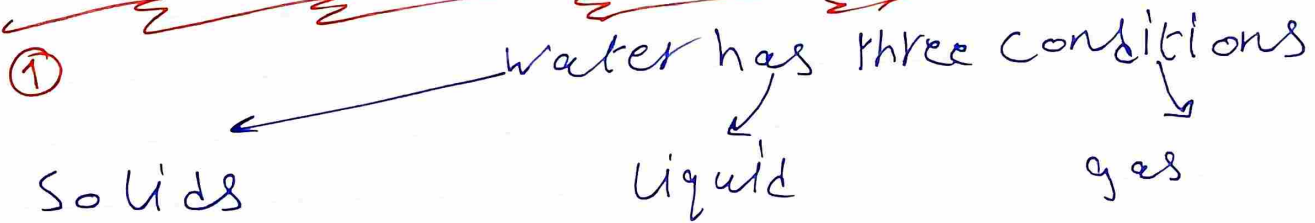 ① water has three conditions
Solids liquid gas